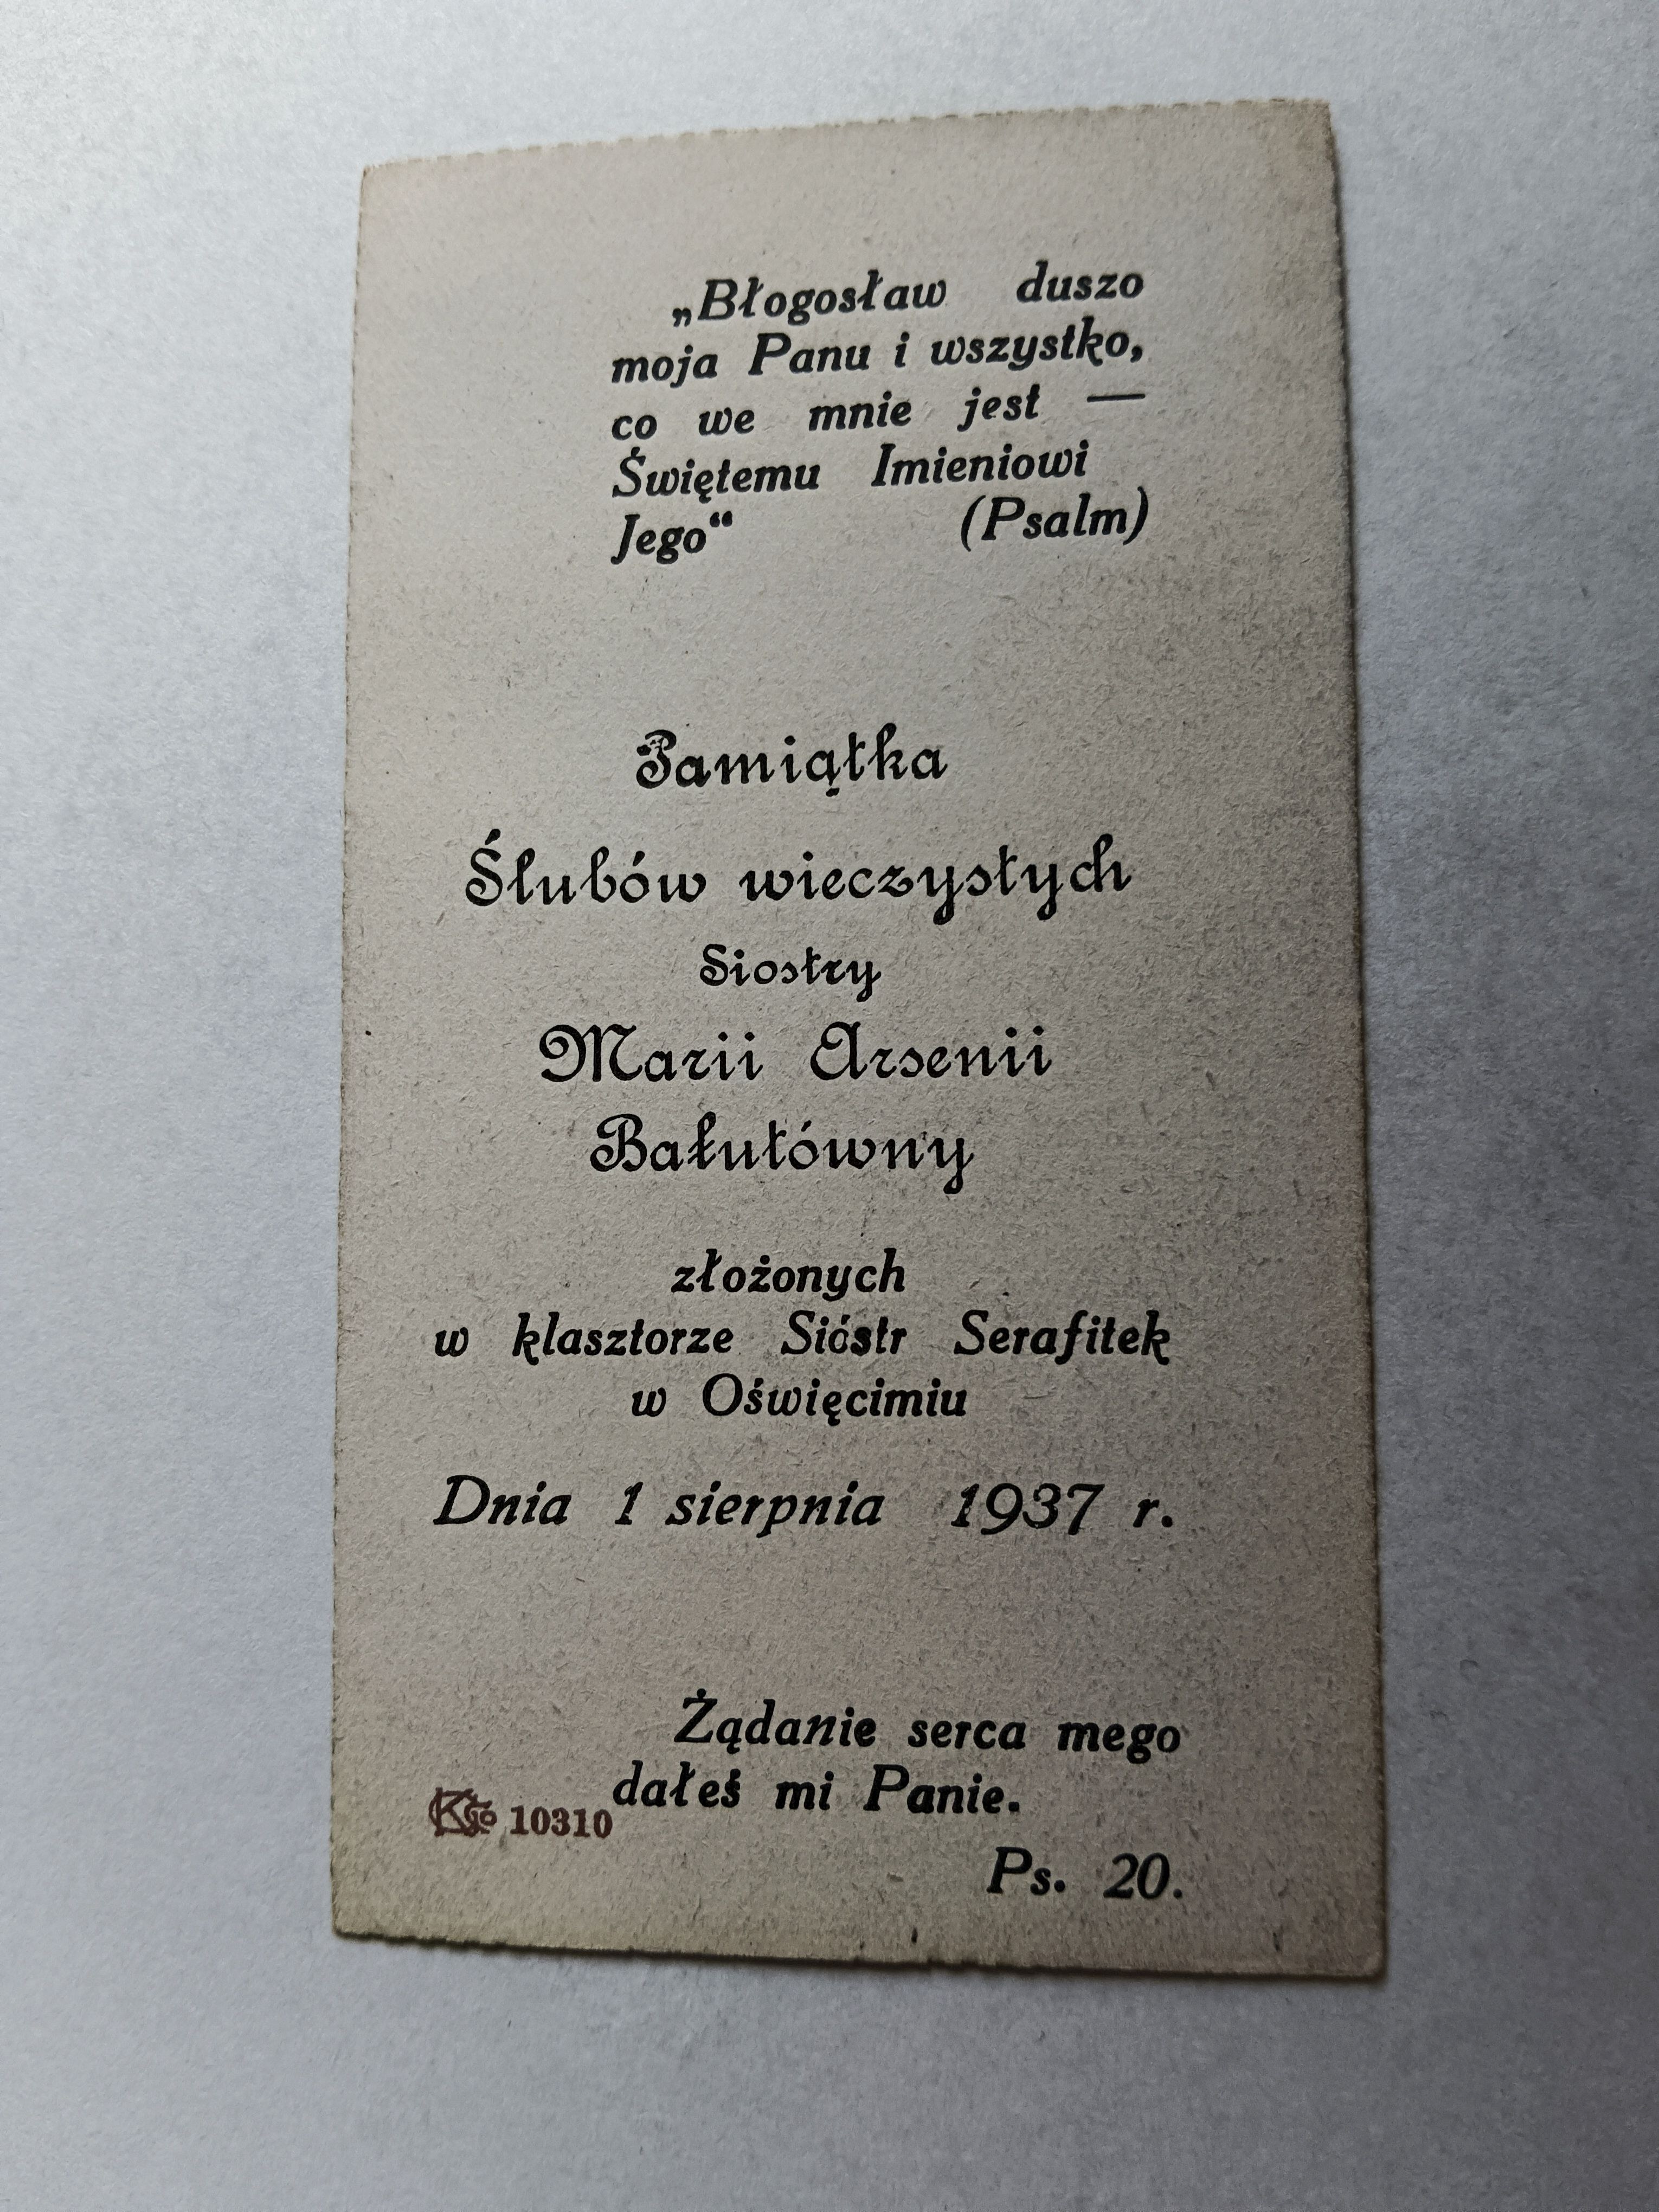 „Błogosław duszo
moja Panu i wszystko,
co we mnie jest —
Świętemu Imieniowi
Jego“ (Psalm)
Pamiątka
Ślubów wieczystych
Siostry
Marii Arsenii
Bałutówny
złożonych
w klasztorze Sióstr Serafitek
w Oświęcimiu
Dnia 1 sierpnia 1937 r.
Żądanie serca mego
dałeś mi Panie.
10310
Ps. 20.